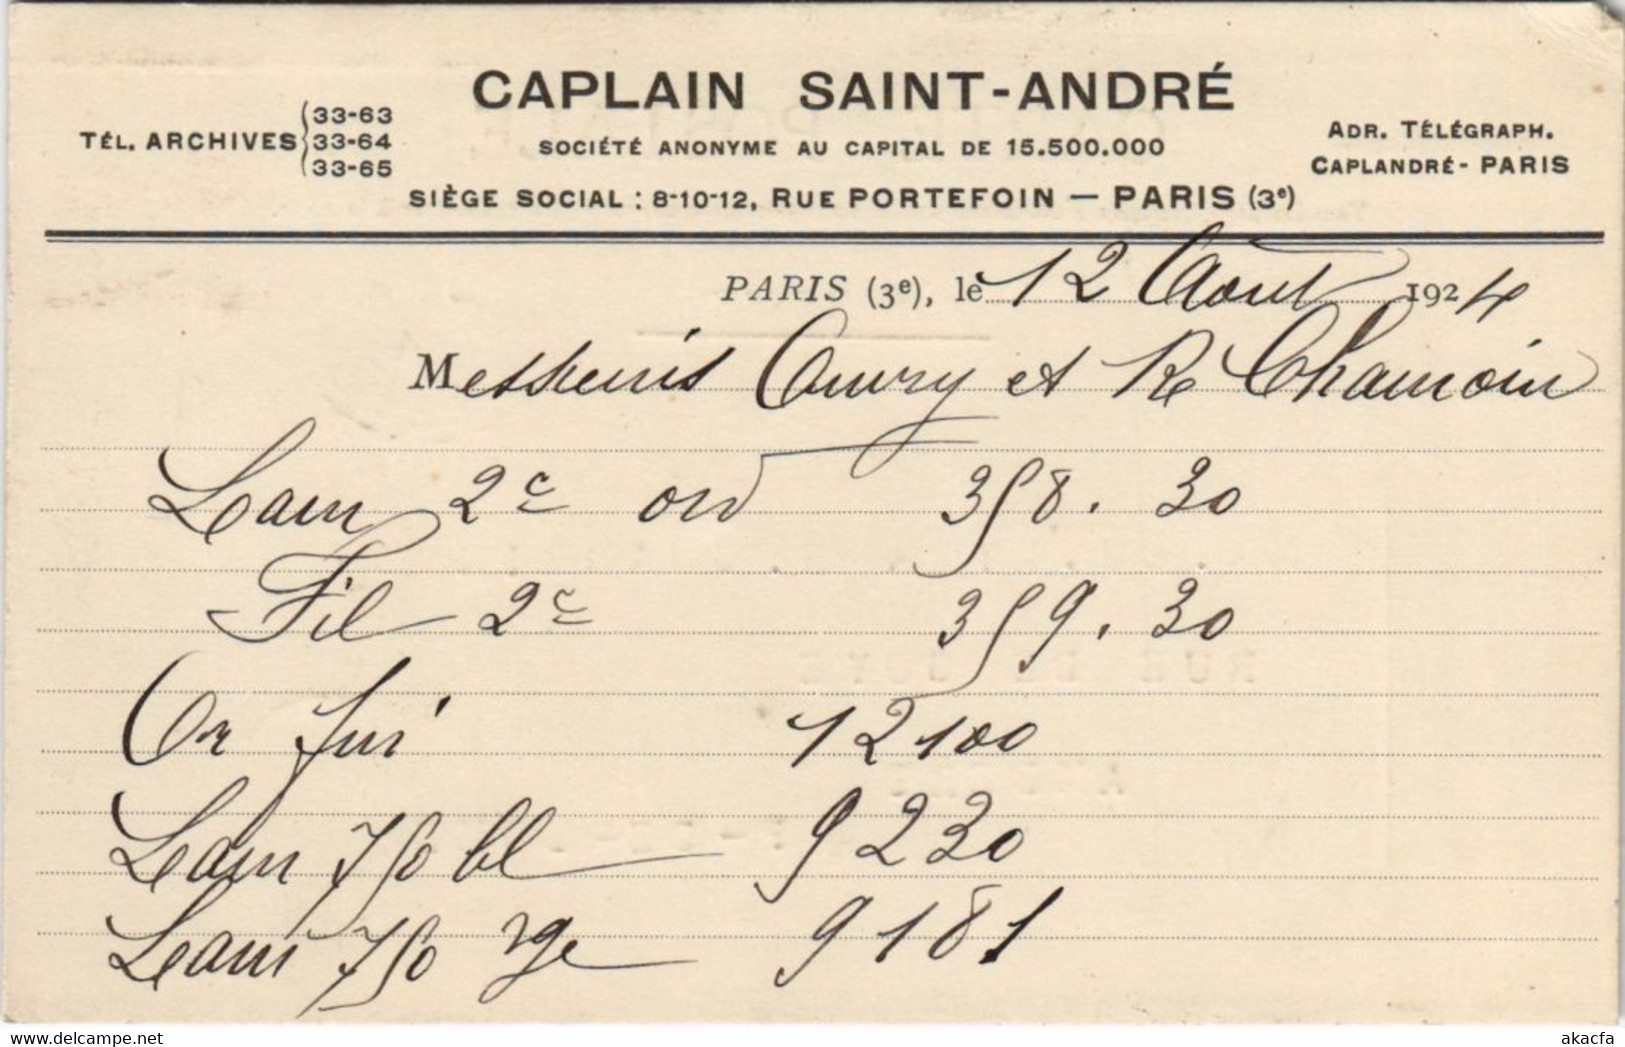 CAPLAIN SAINT-ANDRÉ
TÉL. ARCHIVES 33-63
33-64
33-65
SOCIÉTÉ ANONYME AU CAPITAL DE 15.500.000
ADR. TÉLÉGRAPH.
CAPLANDRÉ - PARIS
SIÈGE SOCIAL : 8-10-12, RUE PORTEFOIN — PARIS (3e)
PARIS (3e), le 12 Août 1924
Messieurs et
Lam 2c 358.30
Fil 2c 359.30
Or fin 12100
Lam 750 bl 9230
Lam 750 rge 9181
akacfa
www.delcampe.net